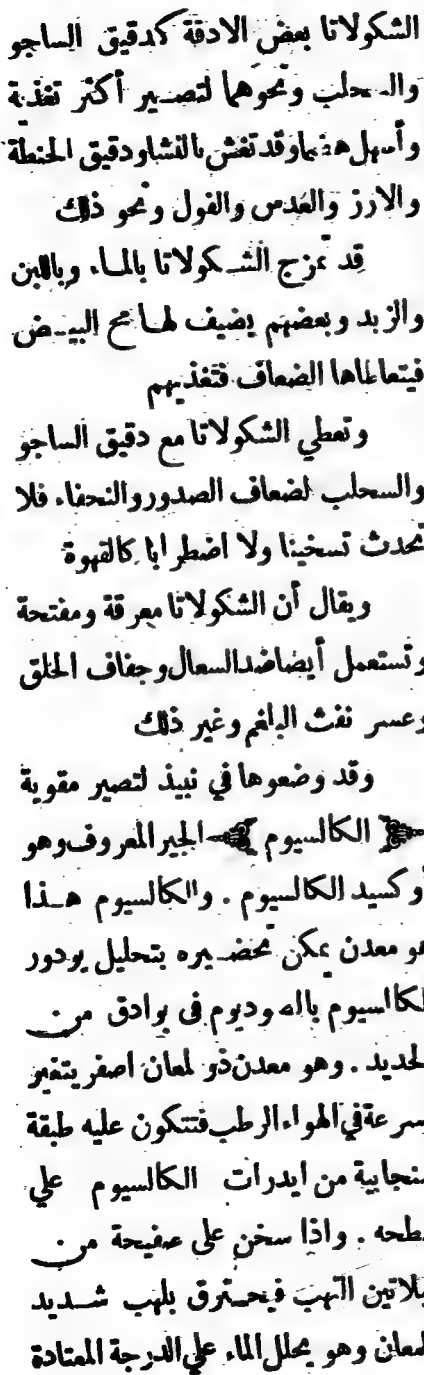 الشكولاتا بعض الادقة كدقيق الساجو
والسحلب ونحوهما لتصير أكثر تغذية
وأسهل هضما وقد تغش بالنشا ودقيق الحنطة
والارز والعدس والفول ونحو ذلك
قد تمزج الشكولاتا بالماء وباللبن
والزبد وبعضهم يضيف لها مح البيض
فيتعاطاها الضعاف فتغذيهم
وتعطي الشكولاتا مع دقيق الساجو
والسحلب لضعاف الصدور والنحفاء فلا
تحدث تسخينا ولا اضطرابا كالقهوة
ويقال أن الشكولاتا معرقة ومفتحة
وتستعمل أيضا ضد السعال وجفاف الحلق
وعسر نفث البلغم وغير ذلك
وقد وضعوها في نبيذ لتصير مقوية
﴿ الكالسيوم ﴾ الجير المعروف وهو
أوكسيد الكالسيوم . والكالسيوم هذا
هو معدن يمكن تحضيره بتحليل يودور
الكالسيوم بالصوديوم فى بوادق من
الحديد . وهو معدن ذو لمعان اصفر يتغير
بسرعة في الهواء الرطب فتتكون عليه طبقة
سنجابية من ايدرات الكالسيوم علي
سطحه . واذا سخن على صفيحة من
بلاتين التهب فيحترق بلهب شديد
اللمعان وهو يحلل الماء علي الدرجة المعتادة